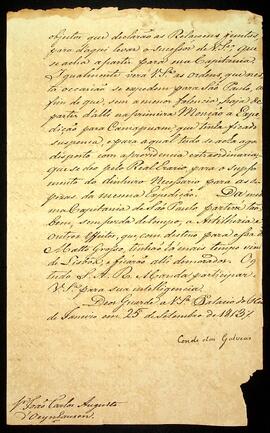 objectos que declarão as Relaçoens juntas,
para d'aqui levar o sucessor de V.S.ª que
se acha a partir para essa Capitania.
Igualmente verá V.S.ª as ordens, que nes-
ta occasião se expedem para São Paulo, a
fim de que, sem a menor falencia, haja de
partir d'alli na primeira Monção a Expe-
dição para Camapuam, que tenha ficado
suspensa, e para a qual tudo se acha ago-
ra disposto com a providencia extraordinaria,
que se deo pelo Real Erario, para o suppri-
mento do dinheiro necessario para as des-
pezas da mesma Expedição. Da mes-
ma Capitania de São Paulo partirá tam-
bem, sem perda de tempo, a Artilheria e
outros effeitos, que com destino para essa de
Matto Grosso, tinhão ha mais tempo vin-
do de Lisboa, e ficarão alli demorados. O q
tudo S. A. R. Manda participar a
V.S.ª para sua intelligencia.
Deos Guarde a V.S.ª Palacio do Rio
de Janeiro em 25 de Setembro de 1813
Conde das Galveas
Sr. João Carlos Augusto
d'Oeynhausen.